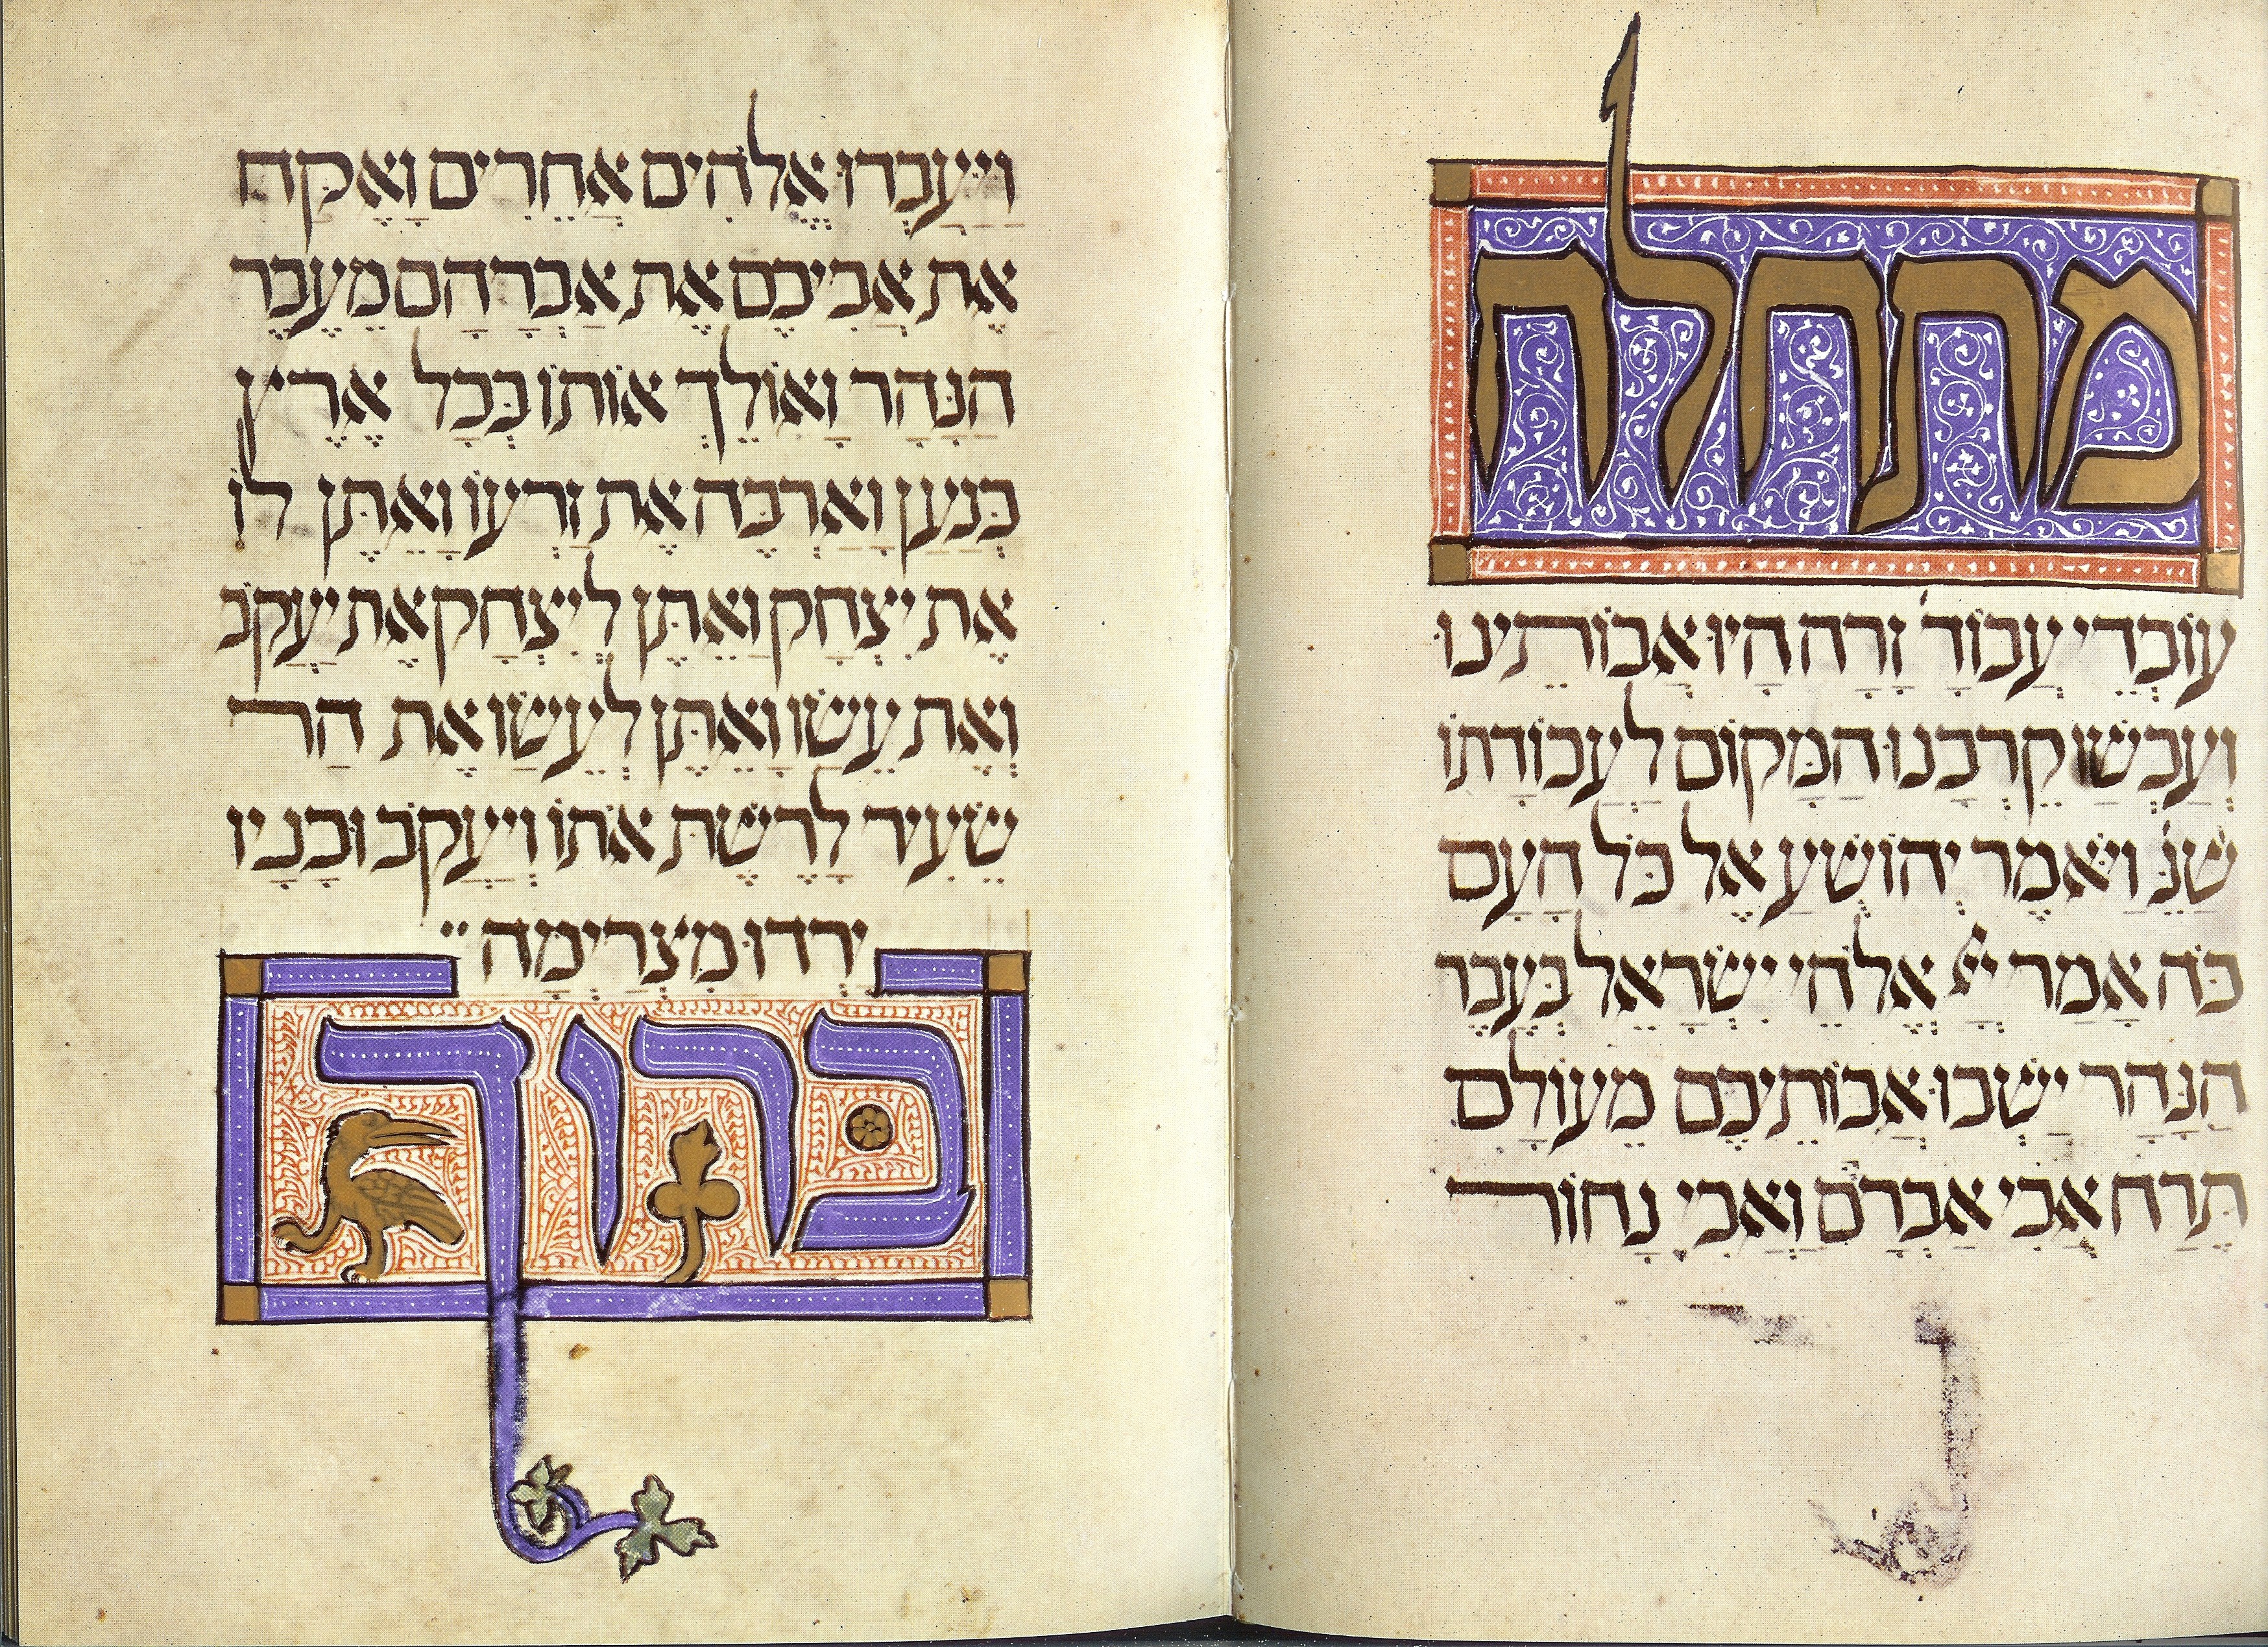 מתחלה
עוֹבְדֵי עֲבוֹדָ׳ זָרָה הָיוּ אֲבוֹתֵינוּ
וְעַכְשַׁו קֵרְבָנוּ הַמָּקוֹם לַעֲבוֹדָתוֹ
שֶׁנֶּ׳ וַיֹּאמֶר יְהוֹשֻׁעַ אֶל כָּל הָעָם
כֹּה אָמַר יְיָ אֱלֹהֵי יִשְׂרָאֵל בְּעֵבֶר
הַנָּהָר יָשְׁבוּ אֲבוֹתֵיכֶם מֵעוֹלָם
תֶּרַח אֲבִי אַבְרָהָם וַאֲבִי נָחוֹר
וַיַּעַבְדוּ אֱלֹהִים אֲחֵרִים וָאֶקַּח
אֶת אֲבִיכֶם אֶת אַבְרָהָם מֵעֵבֶר
הַנָּהָר וָאוֹלֵךְ אוֹתוֹ בְּכָל אֶרֶץ
כְּנַעַן וָאַרְבֶּה אֶת זַרְעוֹ וָאֶתֶּן לוֹ
אֶת יִצְחָק וָאֶתֶּן לְיִצְחָק אֶת יַעֲקֹב
וְאֶת עֵשָׂו וָאֶתֵּן לְעֵשָׂו אֶת הַר
שֵׂעִיר לָרֶשֶׁת אֹתוֹ וְיַעֲקֹב וּבָנָיו
יָרְדוּ מִצְרָיְמָה
ברוך